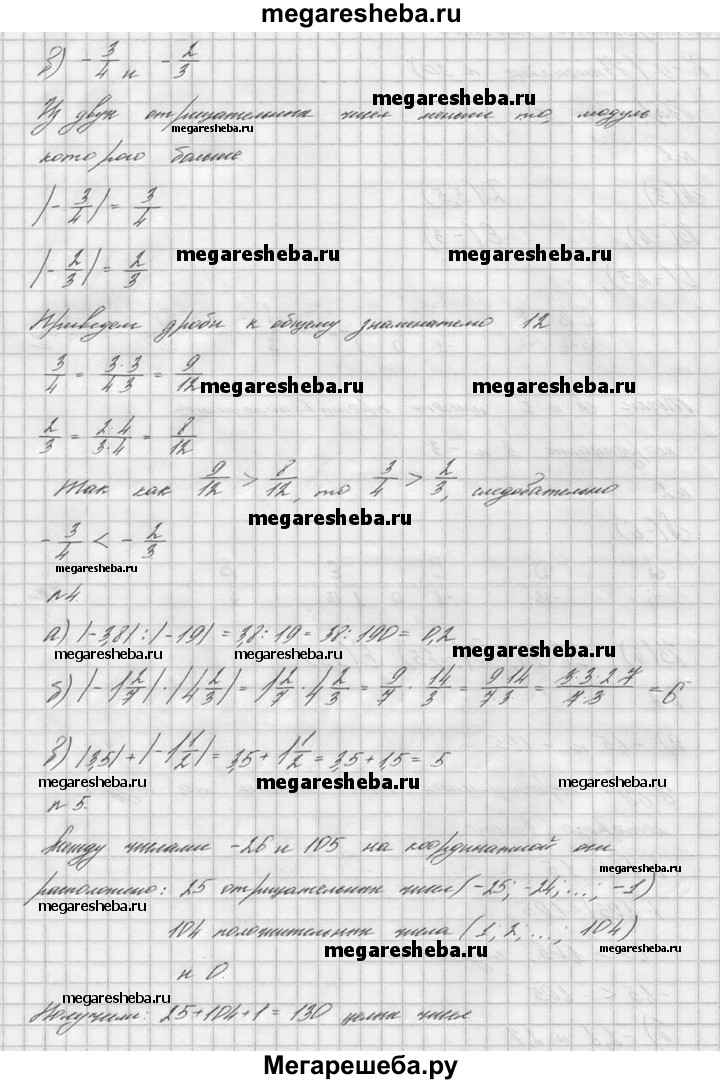 megaresheba.ru
в) -3/4 и -2/3
megaresheba.ru
Из двух отрицательных чисел меньше то, модуль
megaresheba.ru
которого больше.
|-3/4| = 3/4
megaresheba.ru megaresheba.ru
|-2/3| = 2/3
Приведем дроби к общему знаменателю 12
3/4 = 3·3/4·3 = 9/12
megaresheba.ru megaresheba.ru
2/3 = 2·4/3·4 = 8/12
Так как 9/12 > 8/12, то 3/4 > 2/3, следовательно
megaresheba.ru
-3/4 < -2/3
megaresheba.ru
№4.
а) |-3,8| : |-19| = 3,8 : 19 = 38 : 190 = 0,2
megaresheba.ru megaresheba.ru megaresheba.ru
б) |-1 2/7| · |4 2/3| = 1 2/7 · 4 2/3 = 9/7 · 14/3 = 9·14/7·3 = 3·3·2·7/7·3 = 6
в) |3,5| + |-1 1/2| = 3,5 + 1 1/2 = 3,5 + 1,5 = 5
megaresheba.ru megaresheba.ru megaresheba.ru
№5.
Между числами -26 и 105 на координатной оси
megaresheba.ru
расположено: 25 отрицательных чисел (-25; -24; ...; -1)
megaresheba.ru
104 положительных числа (1; 2; ...; 104)
megaresheba.ru megaresheba.ru
и 0.
megaresheba.ru
Получим: 25+104+1 = 130 целых чисел
Мегарешеба.ру